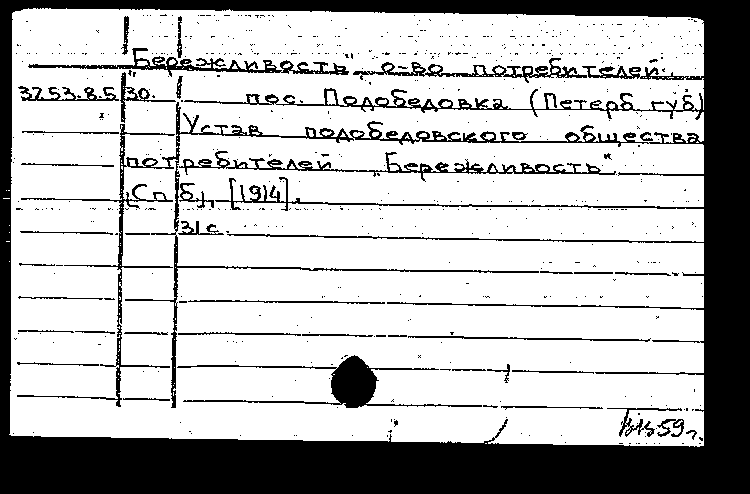 "Бережливость", о-во потребителей.
37.53.8.5 30. пос. Подобедовка (Петерб. губ.)
Устав подобедовского общества
потребителей „Бережливость".
[Спб], [1914].
31 с.
59 г.